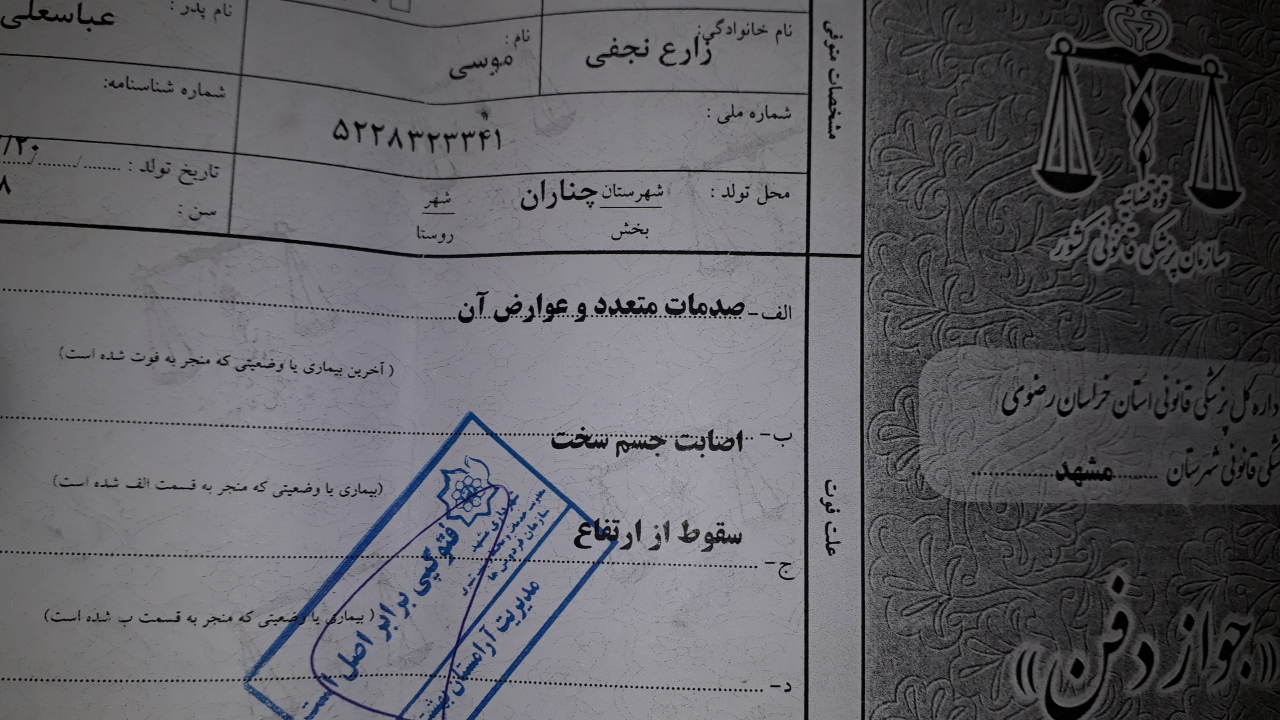 قوه قضاییه
سازمان پزشکی قانونی کشور
اداره کل پزشکی قانونی استان خراسان رضوی
پزشکی قانونی شهرستان مشهد
«جواز دفن»
مشخصات متوفی
نام خانوادگی: زارع نجفی
نام: موسی
نام پدر: عباسعلی
شماره ملی: ۵۲۲۸۳۲۳۳۴۱
شماره شناسنامه:
محل تولد: شهرستان چناران شهر
بخش روستا
تاریخ تولد: /۲۰
سن: ۸
علت فوت
الف- صدمات متعدد و عوارض آن
( آخرین بیماری یا وضعیتی که منجر به فوت شده است)
ب- اصابت جسم سخت
(بیماری یا وضعیتی که منجر به قسمت الف شده است)
ج- سقوط از ارتفاع
( بیماری یا وضعیتی که منجر به قسمت ب شده است)
د-
شهرداری مشهد
سازمان فردوس ها
فتوکپی برابر اصل است
مدیریت آرامستان بهشت